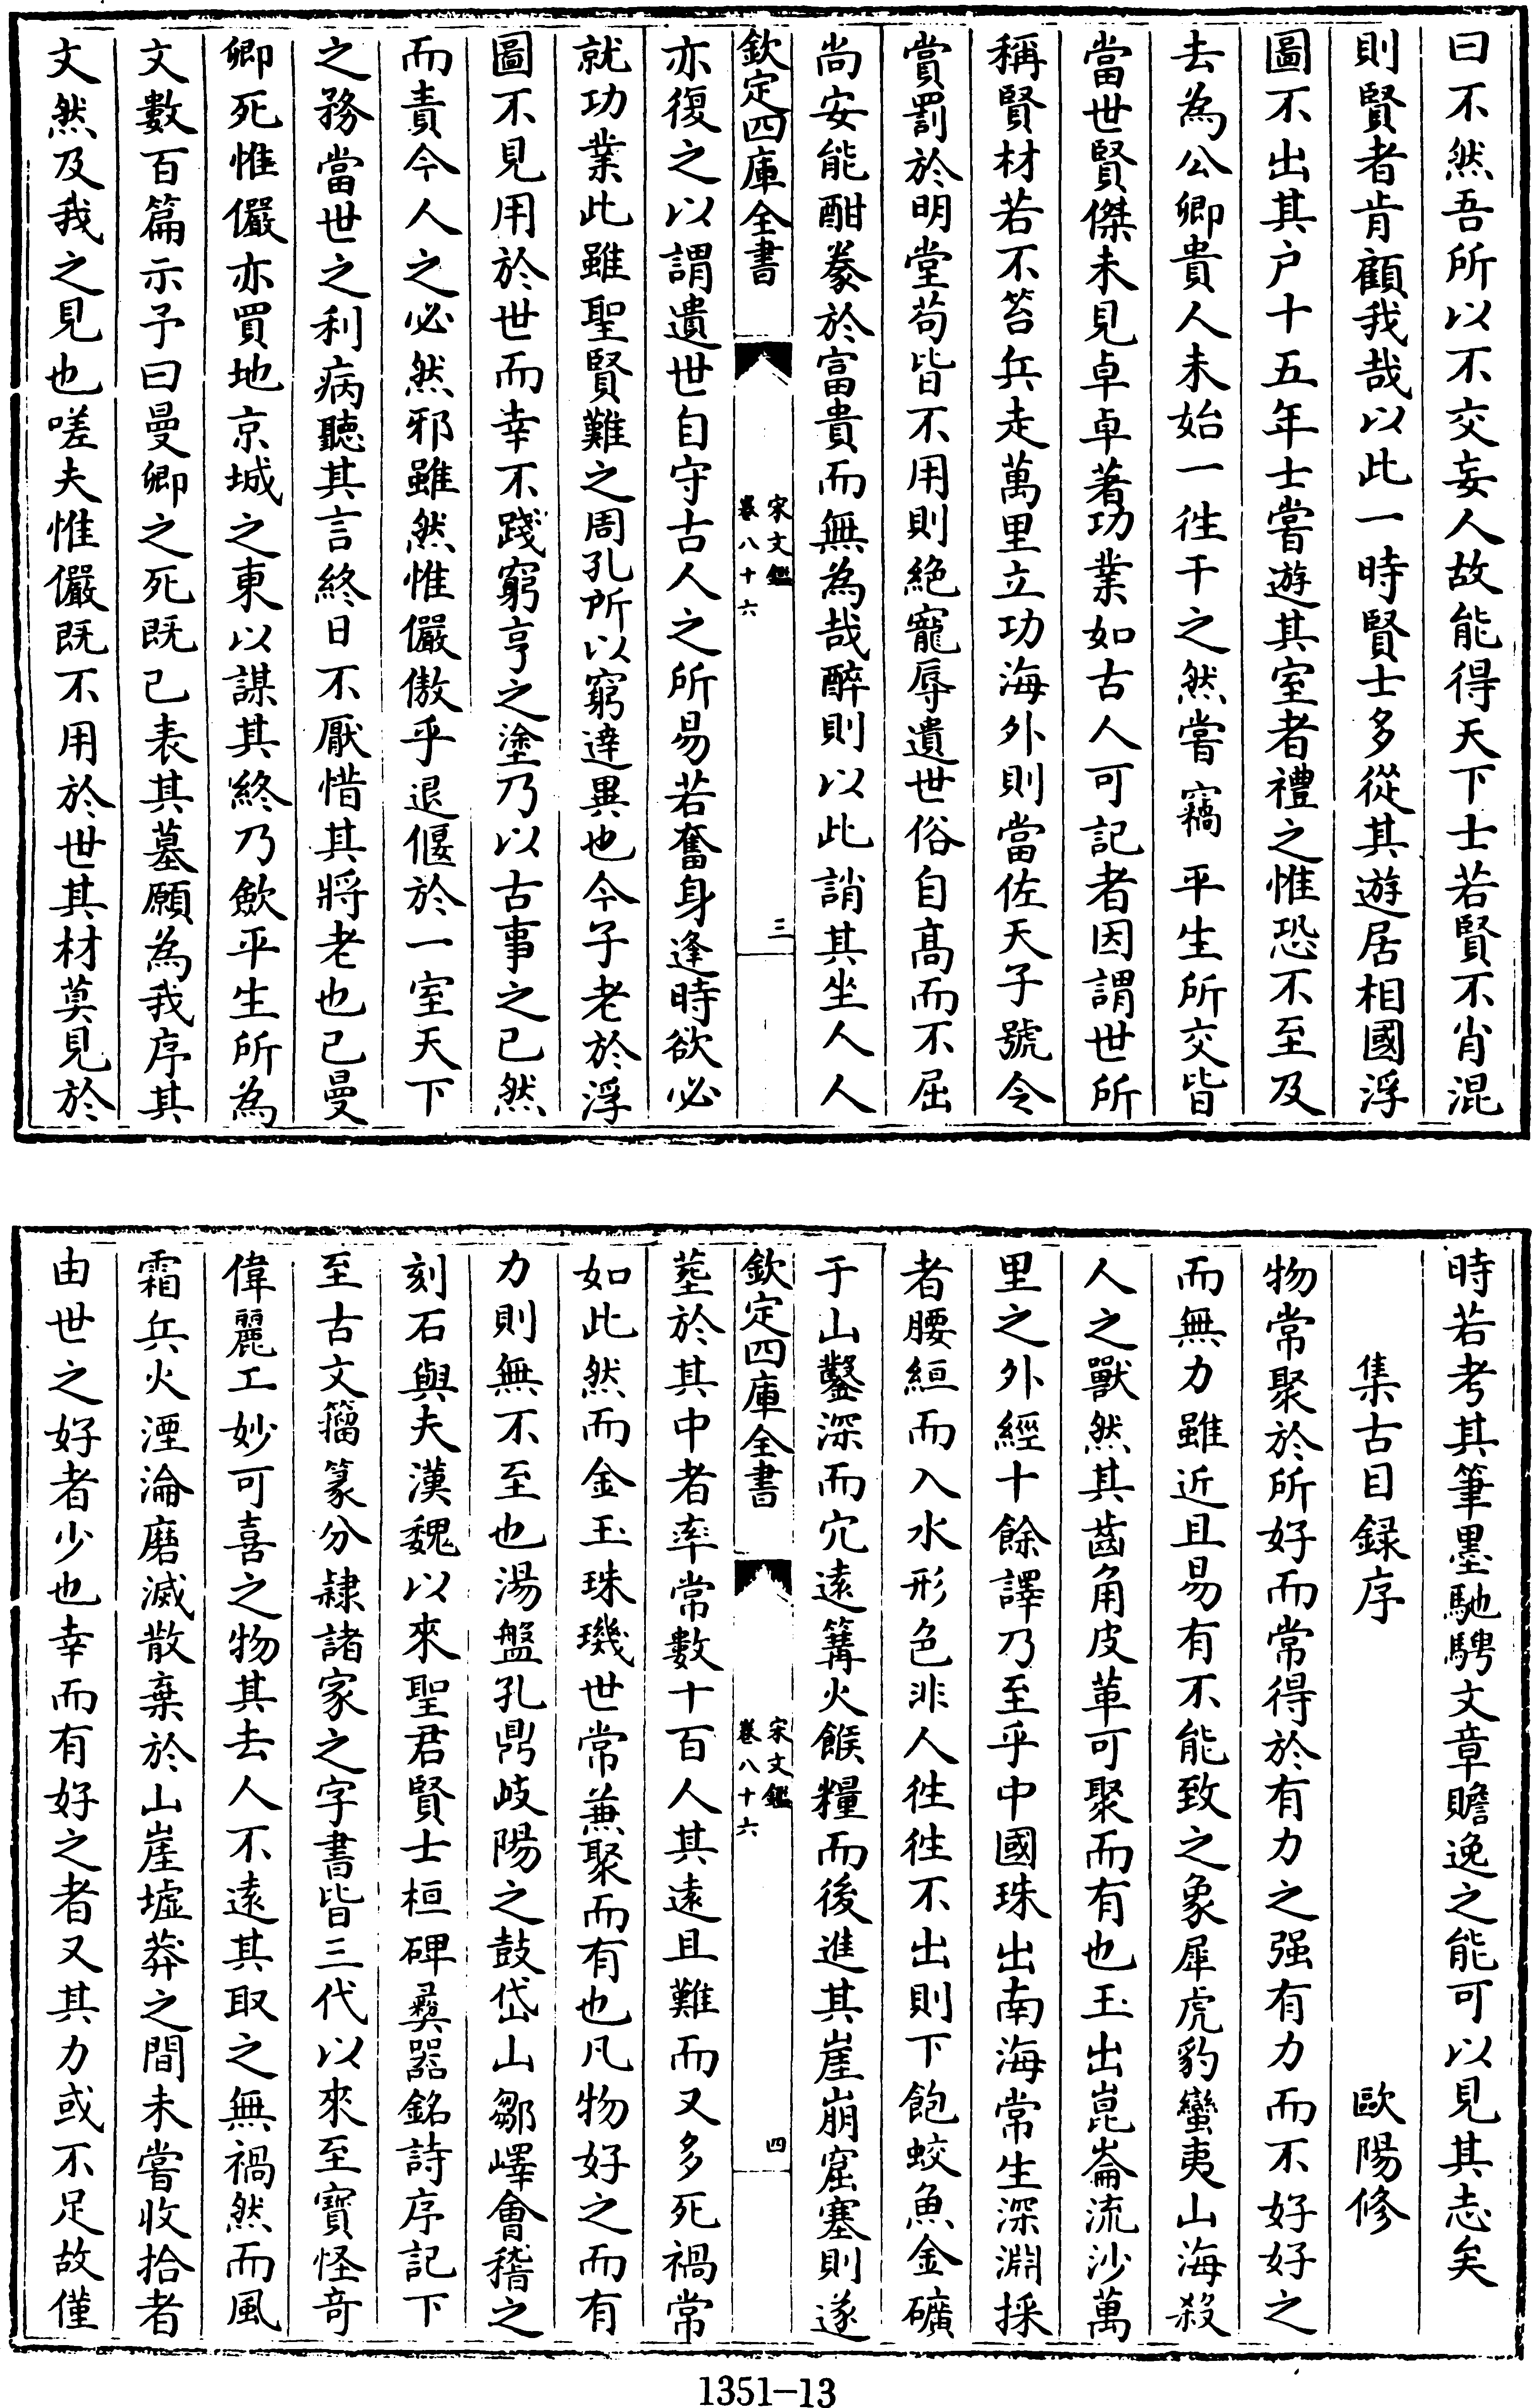 曰不然吾所以不交妄人故能得天下士若賢不肖混
則賢者肯顧我哉以此一時賢士多從其遊居相國浮
圖不出其户十五年士嘗遊其室者禮之惟恐不至及
去為公卿貴人未始一徃干之然嘗竊平生所交皆
當世賢傑未見卓卓著功業如古人可記者因謂世所
稱賢材若不笞兵走萬里立功海外則當佐天子號令
賞罰於明堂苟皆不用則絶寵辱遺世俗自髙而不屈
尚安能酣豢於富貴而無為哉醉則以此誚其坐人人
欽定四庫全書
宋文鑑
卷八十六
三
亦復之以謂遺世自守古人之所易若奮身逢時欲必
就功業此雖聖賢難之周孔所以窮達異也今子老於浮
圖不見用於世而幸不踐窮亨之塗乃以古事之已然
而責今人之必然邪雖然惟儼傲乎退偃於一室天下
之務當世之利病聽其言終日不厭惜其將老也已曼
卿死惟儼亦買地京城之東以謀其終乃斂平生所為
文數百篇示予曰曼卿之死既已表其墓願為我序其
文然及我之見也嗟夫惟儼既不用於世其材莫見於
時若考其筆墨馳騁文章贍逸之能可以見其志矣
集古目録序
歐陽修
物常聚於所好而常得於有力之强有力而不好好之
而無力雖近且易有不能致之象犀虎豹蠻夷山海殺
人之獸然其齒角皮革可聚而有也玉出崑崙流沙萬
里之外經十餘譯乃至乎中國珠出南海常生深淵採
者腰絙而入水形色非人徃徃不出則下飽蛟魚金礦
于山鑿深而穴逺篝火餱糧而後進其崖崩窟塞則遂
欽定四庫全書
宋文鑑
卷八十六
四
塟於其中者率常數十百人其逺且難而又多死禍常
如此然而金玉珠璣世常兼聚而有也凡物好之而有
力則無不至也湯盤孔鼎岐陽之鼓岱山鄒嶧會稽之
刻石與夫漢魏以來聖君賢士桓碑彞器銘詩序記下
至古文籀篆分隸諸家之字書皆三代以來至寶怪竒
偉麗工妙可喜之物其去人不逺其取之無禍然而風
霜兵火湮淪磨滅散棄於山崖墟莽之間未嘗收拾者
由世之好者少也幸而有好之者又其力或不足故僅
1351-13